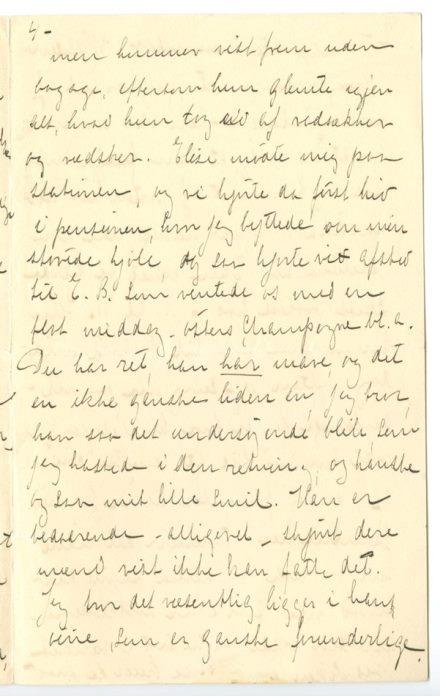 4-
men kommer vist frem uden
bagage, eftersom hun glemte igjen
alt, hvad hun tog af vadsækker
og vædsker. Elise mødte mig paa
stationen, og vi kjørte da først hid
i pensionen, hvor jeg byttede om min
støvede kjole, og saa kjørte vi afsted
til E. B. som ventede os med en
fest middag - østers, Champagne bl. a.
Du har ret, han har mave, og det
en ikke ganske liden en, jeg tror
han saa det undersøgende blik, som
jeg kastede i den retning, og kanske
og saa mit lille smil. Han er
bedaarende - alligevel - skjønt dere
mænd vist ikke kan fatte det.
Jeg tror det væsentlig ligger i hans
øine, som er ganske forunderlige.